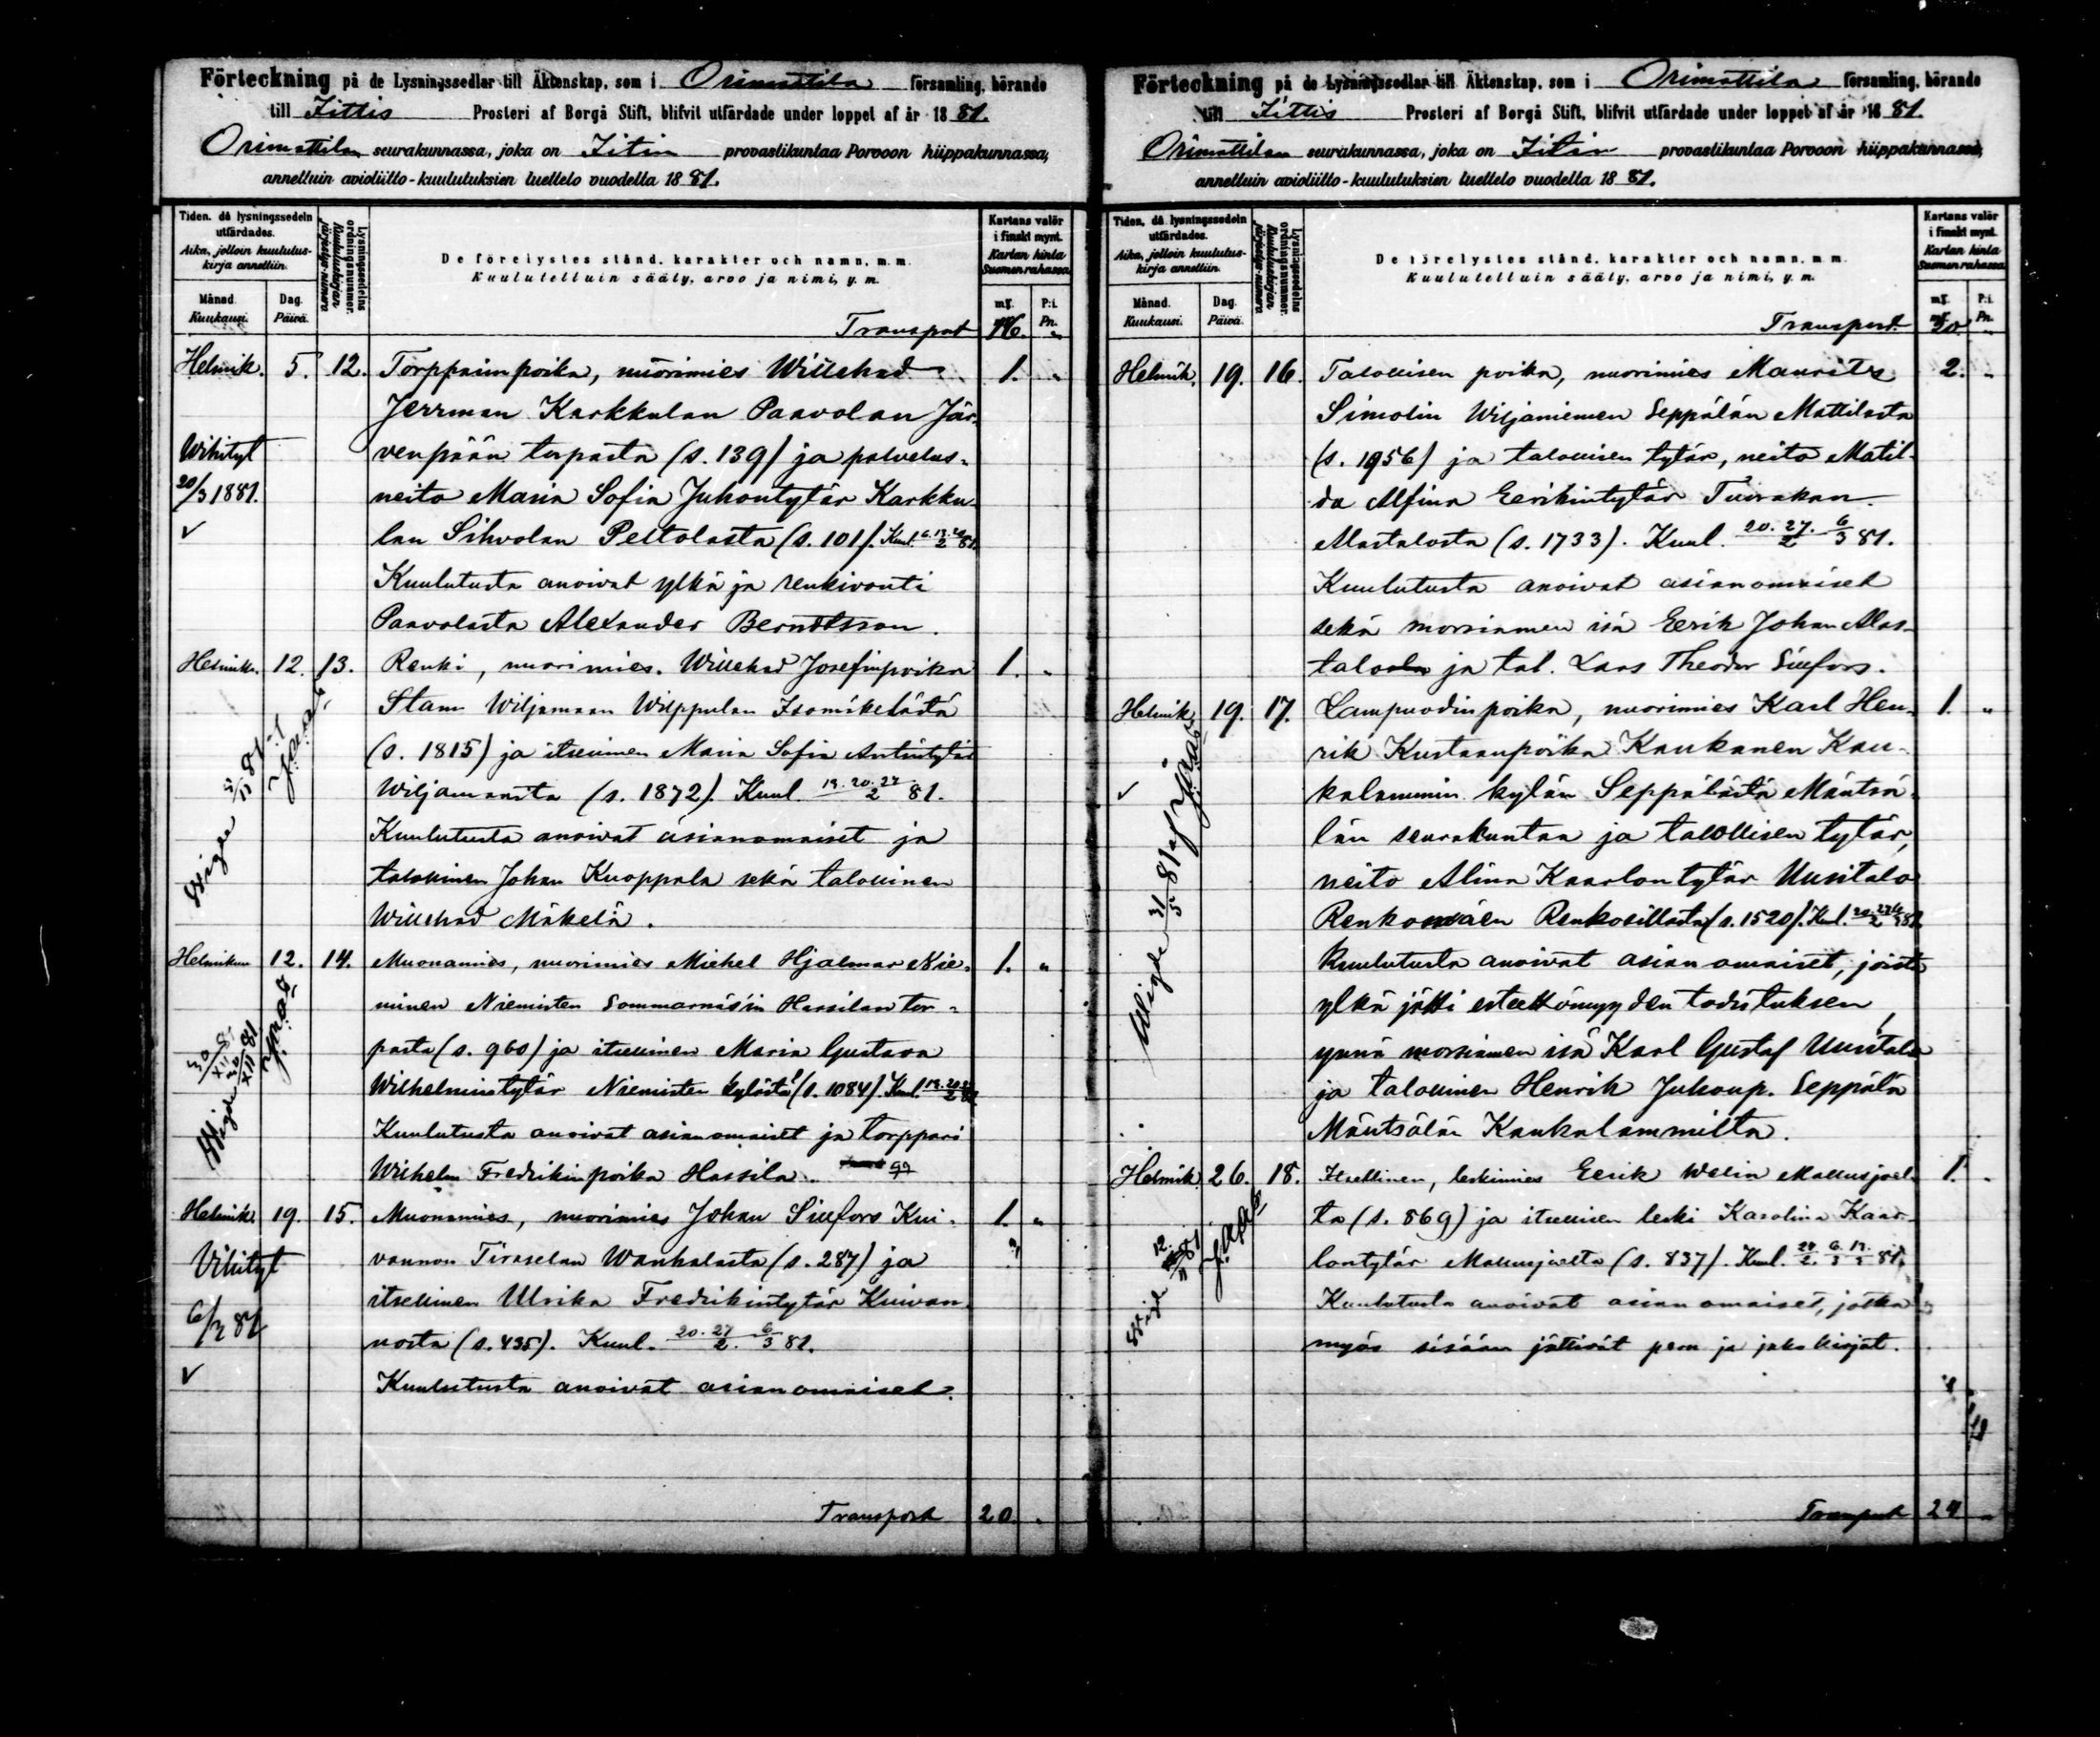 Förteckning på de Lysningssedlar till Äktenskap, som i Orimattila församling, hörande
till Iittis Prosteri af Borgå Stift, blifvit utfärdade under loppet af år 1881.
Orimattilan seurakunnassa, joka on Iitin provastikuntaa Porvoon hiippakunnassa,
annettuin avioliitto-kuulutuksien luettelo vuodella 1881.
Tiden, då lysningssedeln utfärdades.
Aika, jolloin kuulutus-kirja annettiin.
Månad. Kuukausi.
Dag. Päivä.
Lysningssedelns ordningsnummer.
Kuulutuskirjan järjestys-numero
De förelystes stånd, karakter och namn, m. m.
Kuulutelluin sääty, arvo ja nimi, y. m.
Kartans valör i finskt mynt.
Kartan hinta Suomen rahassa.
mf. P:i.
mf. Pn.
Transport 16. "
Helmik. 5. 12. Torpparinpoika, nuorimies Willehad 1. "
Jerrman Karkkulan Paavolan Jär-
Wihityt venpään torpasta (s. 139) ja palvelus-
20/3 1881. neito Maria Sofia Juhontytär Karkku-
lan Sihvolan Peltolasta (s. 101). Kuul. 6. 13. 20/2 81.
Kuulutusta anoivat ylkä ja renkivouti
Paavolasta Alexander Berndtsson.
Helmik. 12. 13. Renki, nuorimies Willehad Josefinpoika 1. "
Stam Wiljamaan Wilppulan Isomäkelästä
(s. 1815) ja itsellinen Maria Sofia Antintytär
Wiljamaasta (s. 1872). Kuul. 13. 20. 27/2 81.
Kuulutusta anoivat asianomaiset ja
talollinen Johan Kuoppala sekä talollinen
Willehad Mäkelä.
Helmikuu 12. 14. Muonamies, nuorimies Michel Hjalmar Nie- 1. "
minen Niemisten Sommarnäs'in Hassilan tor-
pasta (s. 960) ja itsellinen Maria Gustava
Wilhelmintytär Niemisten kylästä (s. 1084). Kuul. 13. 20. 27/2 81.
Kuulutusta anoivat asianomaiset ja torppari
Wilhelm Fredrikinpoika Hassila.
Helmik. 19. 15. Muonamies, nuorimies Johan Sillfors Kui- 1. "
Vihityt vannon Tiraselan Wanhalasta (s. 287) ja
itsellinen Ulrika Fredrikintytär Kuivan-
nosta (s. 435). Kuul. 20. 27/2. 6/3 81.
Kuulutusta anoivat asianomaiset.
Transport 20. "
Förteckning på de Lysningssedlar till Äktenskap, som i Orimattila församling, hörande
till Iittis Prosteri af Borgå Stift, blifvit utfärdade under loppet af år 1881.
Orimattilan seurakunnassa, joka on Iitin provastikuntaa Porvoon hiippakunnassa,
annettuin avioliitto-kuulutuksien luettelo vuodella 1881.
Tiden, då lysningssedeln utfärdades.
Aika, jolloin kuulutus-kirja annettiin.
Månad. Kuukausi.
Dag. Päivä.
Lysningssedelns ordningsnummer.
Kuulutuskirjan järjestys-numero
De förelystes stånd, karakter och namn, m. m.
Kuulutelluin sääty, arvo ja nimi, y. m.
Kartans valör i finskt mynt.
Kartan hinta Suomen rahassa.
mf. P:i.
mf. Pn.
Transport 20. "
Helmik. 19. 16. Talollisen poika, nuorimies Maurits 2. "
Simolin Wiljaniemen Seppälän Mattilasta
(s. 1956) ja talollisen tytär, neito Matil-
da Alfina Eerikintytär Tuorakan
Alastalosta (s. 1733). Kuul. 20. 27./2 6/3 81.
Kuulutusta anoivat asianomaiset
sekä morsiamen isä Eerik Johan Alas-
talo ja tal. Lars Theodor Sillfors.
Helmik. 19. 17. Lampuodinpoika, nuorimies Karl Hen- 1. "
rik Kustaanpoika Kaukanen Kau-
kalammin kylän Seppälästä Mäntsä-
län seurakuntaa ja talollisen tytär,
neito Alina Kaarlontytär Uusitalo
Renkomäen Renkosillasta (s. 1520). Kuul. 20. 27/2 6/3 81.
Kuulutusta anoivat asianomaiset, joista
ylkä jätti esteettömyyden todistuksen,
ynnä morsiamen isä Karl Gustaf Uusitalo
ja talollinen Henrik Juhonp. Seppälä
Mäntsälän Kaukalammilta.
Helmik. 26. 18. Itsellinen, leskimies Eerik Welin Mallusjoel- 1. "
ta (s. 869) ja itsellinen leski Karolina Kaar-
lontytär Mallusjoelta (s. 837). Kuul. 27/2. 6/3 13/3 81.
Kuulutusta anoivat asianomaiset, jotka
myös sisään jättivät peru ja jako kirjat.
Transport 24 "